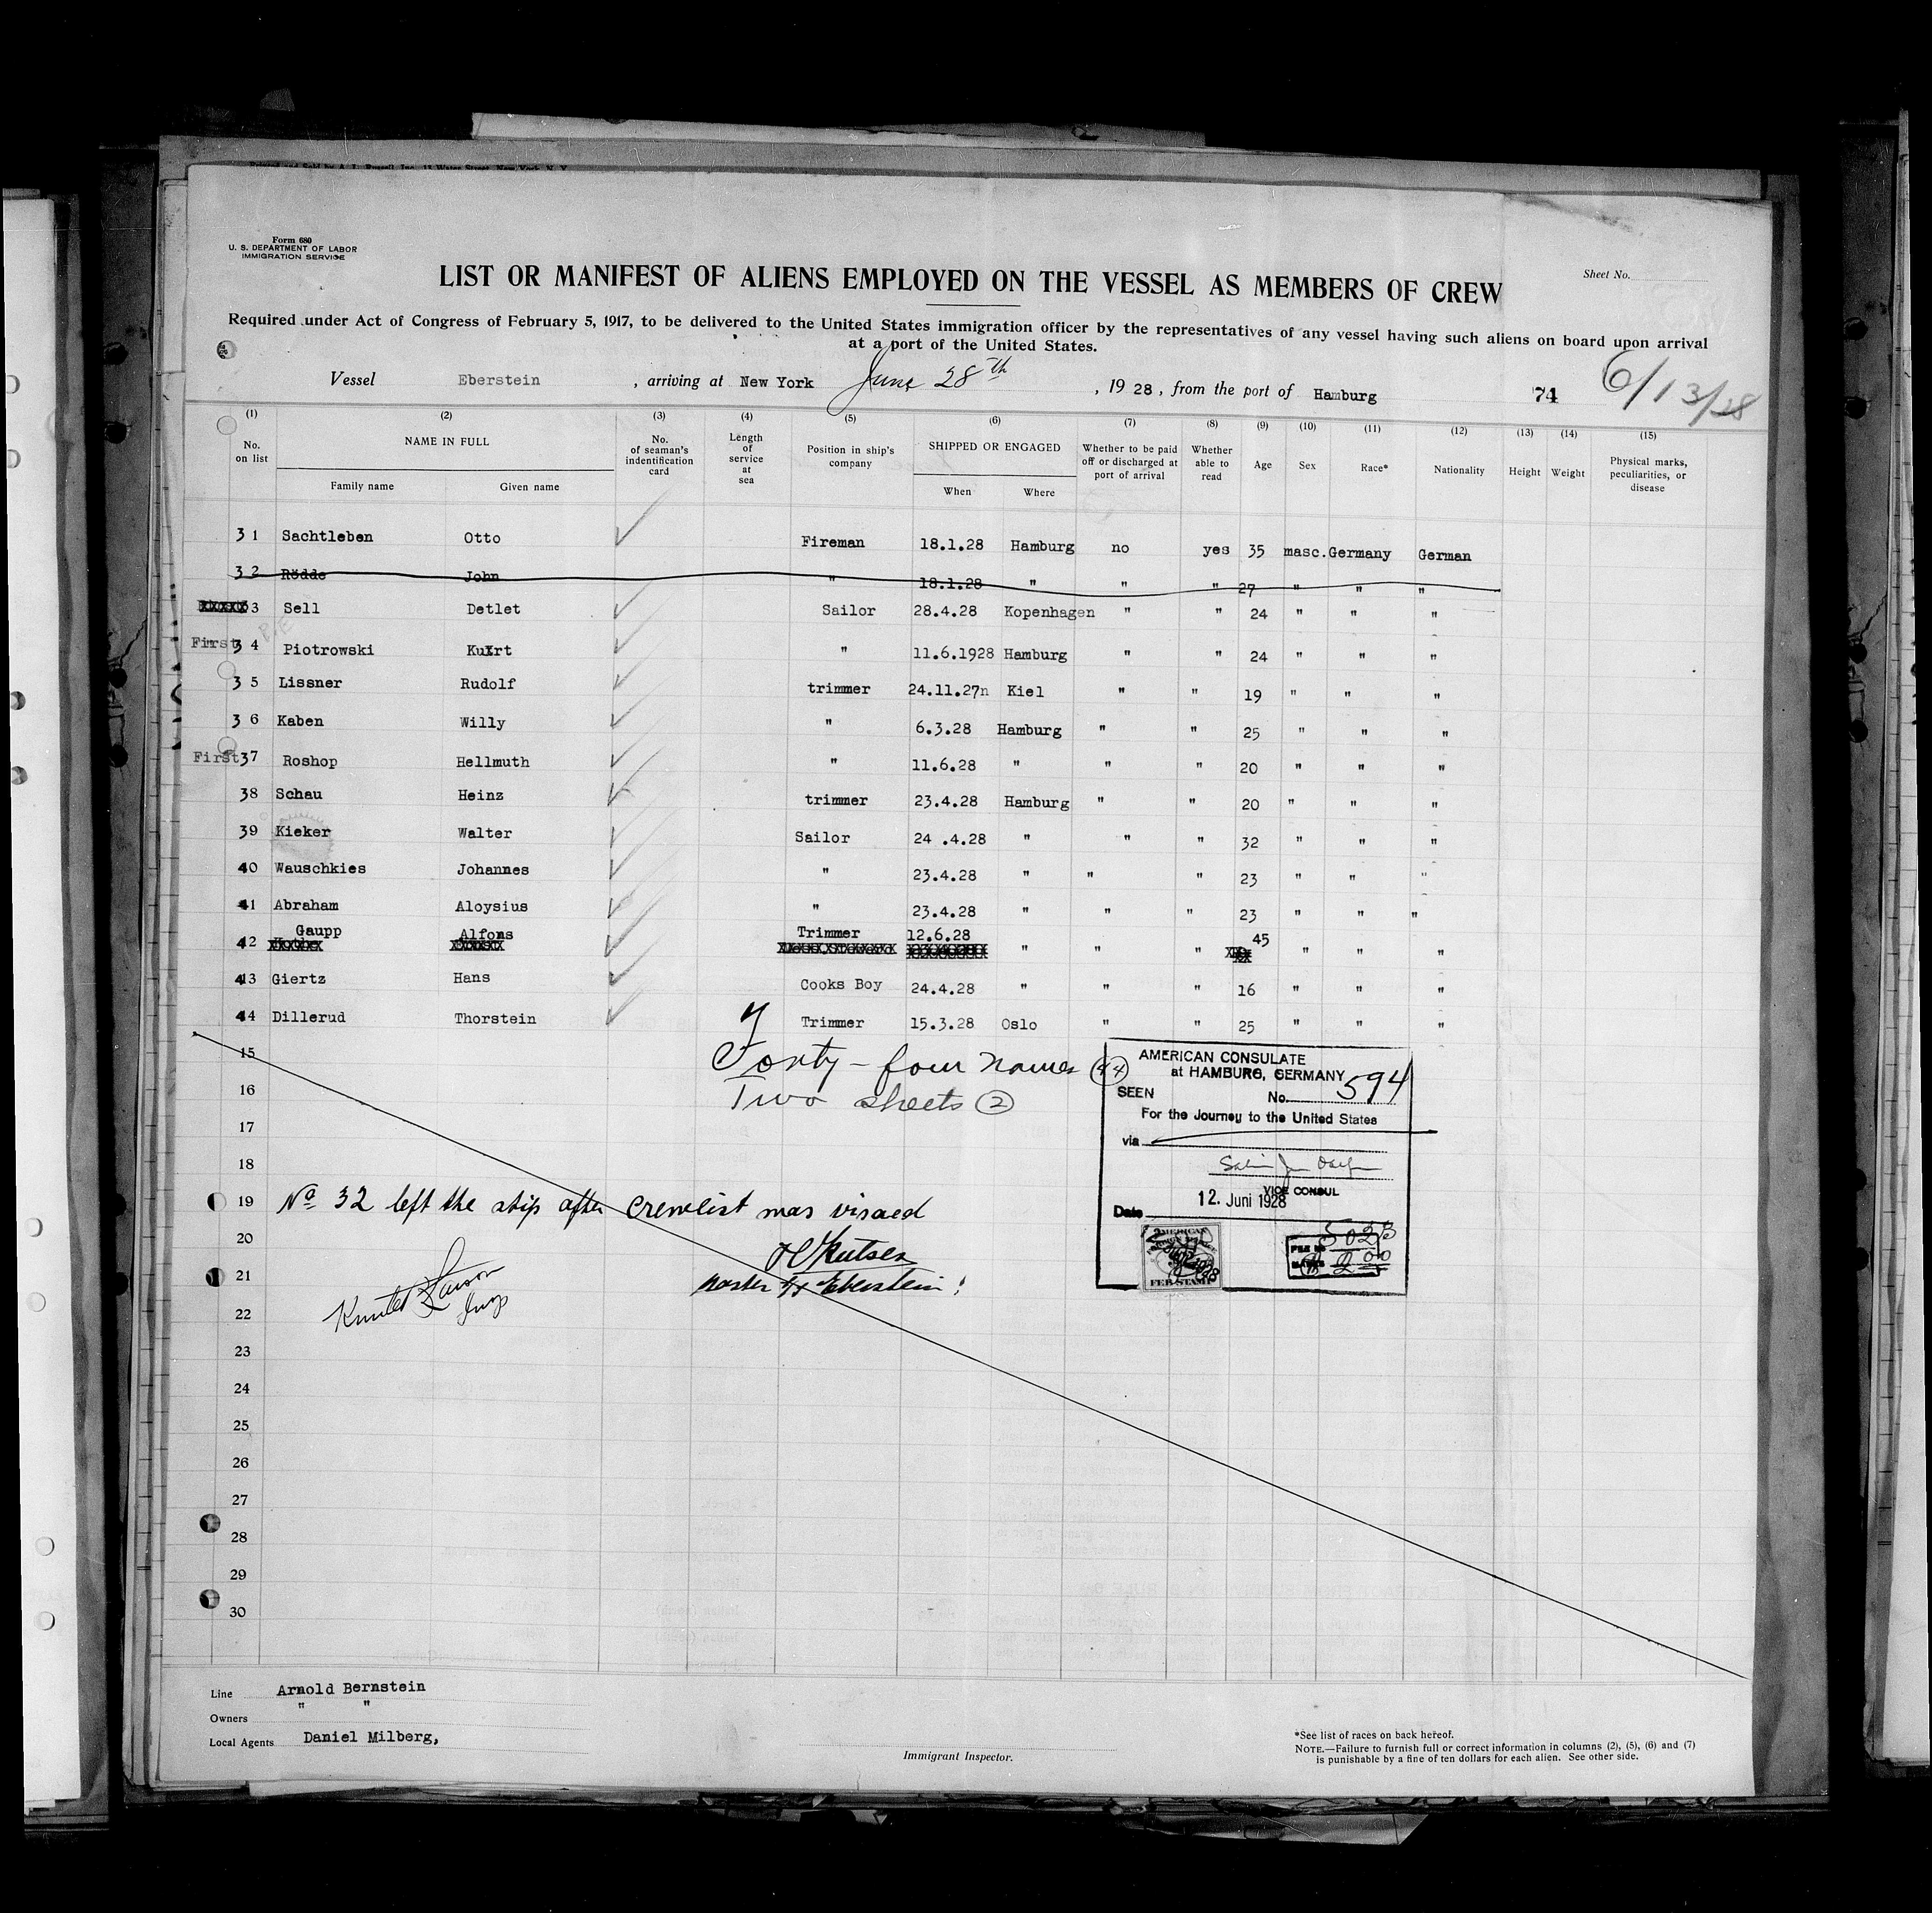 Form 680
U. S. DEPARTMENT OF LABOR
IMMIGRATION SERVICE
Sheet No.
LIST OR MANIFEST OF ALIENS EMPLOYED ON THE VESSEL AS MEMBERS OF CREW
Required under Act of Congress of February 5, 1917, to be delivered to the United States immigration officer by the representatives of any vessel having such aliens on board upon arrival
at a port of the United States.
Vessel Eberstein , arriving at New York June 28th , 19 28 , from the port of Hamburg 74 6/13/28
(1) (2) (3) (4) (5) (6) (7) (8) (9) (10) (11) (12) (13) (14) (15)
No. on list NAME IN FULL Family name Given name No. of seaman's indentification card Length of service at sea Position in ship's company SHIPPED OR ENGAGED When Where Whether to be paid off or discharged at port of arrival Whether able to read Age Sex Race* Nationality Height Weight Physical marks, peculiarities, or disease
3 1 Sachtleben Otto Fireman 18.1.28 Hamburg no yes 35 masc. Germany German
3 2 Rödde John " 18.1.28 " " " 27 " " "
3 Sell Detlet Sailor 28.4.28 Kopenhagen " " 24 " " "
First 3 4 Piotrowski Kuxrt " 11.6.1928 Hamburg " " 24 " " "
3 5 Lissner Rudolf trimmer 24.11.27n Kiel " " 19 " " "
3 6 Kaben Willy " 6.3.28 Hamburg " " 25 " " "
First 37 Roshop Hellmuth " 11.6.28 " " " 20 " " "
38 Schau Heinz trimmer 23.4.28 Hamburg " " 20 " " "
39 Kieker Walter Sailor 24 .4.28 " " " 32 " " "
40 Wauschkies Johannes " 23.4.28 " " " 23 " " "
41 Abraham Aloysius " 23.4.28 " " " 23 " " "
42 Gaupp Alfons Trimmer 12.6.28 " " " 45 " " "
43 Giertz Hans Cooks Boy 24.4.28 " " " 16 " " "
44 Dillerud Thorstein Trimmer 15.3.28 Oslo " " 25 " " "
15
Forty-four names (44)
16
Two sheets (2)
17
18
19 No 32 left the ship after crewlist was visaed
20
21
Master S/S Eberstein!
22
23
24
25
26
27
28
29
30
AMERICAN CONSULATE
at HAMBURG, GERMANY
SEEN No. 594
For the Journey to the United States
via
VICE CONSUL
Date 12. Juni 1928
AMERICAN
FEE STAMP
Line Arnold Bernstein
Owners " "
Local Agents Daniel Milberg,
Immigrant Inspector.
*See list of races on back hereof.
NOTE.—Failure to furnish full or correct information in columns (2), (5), (6) and (7)
is punishable by a fine of ten dollars for each alien. See other side.